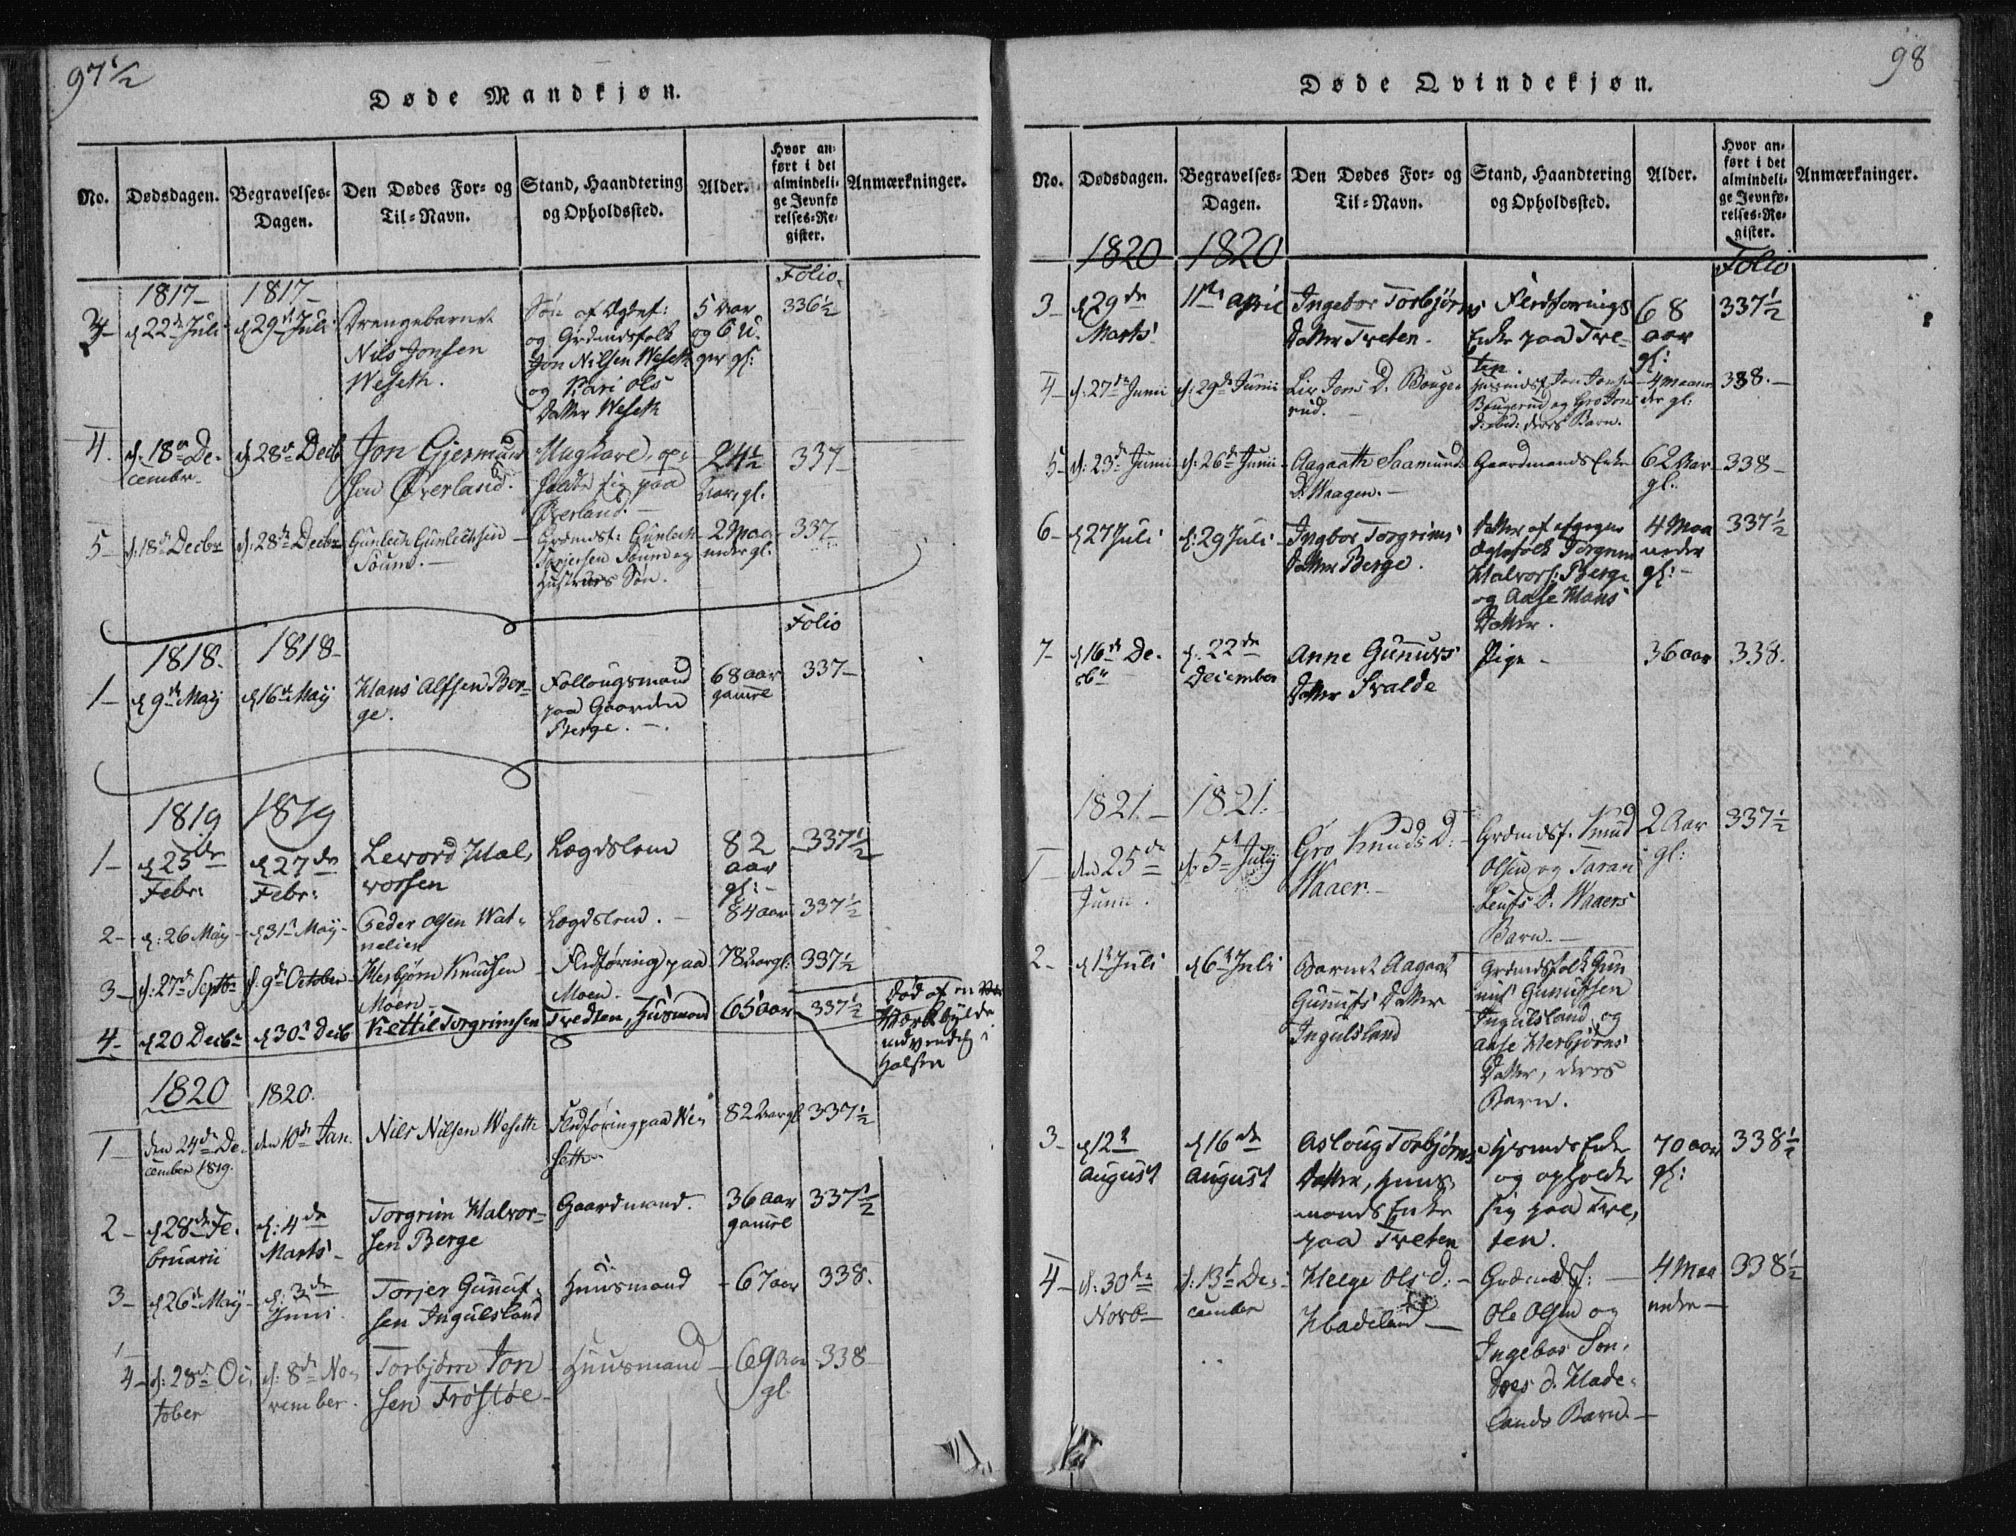 97½
Døde Mandkjøn.
No.
Dødsdagen.
Begravelses-
Dagen.
Den Dødes For- og
Til-Navn.
Stand, Haandtering
og Opholdssted.
Alder.
Hvor an-
ført i det
almindeli-
ge Jevnfø-
relses-Re-
gister.
Anmærkninger.
Folio.
1817- 1817-
3- d 22de Juli d 29de Juli Drengebarnet
Nils Jonsen
Weseth.
Søn af
og Grdmdsfolk
Jon Nilsen Weseth
og Kari Ols
Datter Weseth
5 Aar
og 6 U-
ger gl:
336½
4. d: 18de De-
cembr.
d 28de Decb Jon Gjermund
sen Øverland.
opholdt sig paa
Øverland.-
24½
Aar, gl.
337-
5- d: 18de Decbr d: 28de Decbr Gunlech Gunlechsen
-
Grdmdst: Gunlech
Hustrues Søn.
2 Maa-
neder gl:
337-
Folio
1818. 1818-
1- d 9de May d 16de May Hans Alfsen Ber-
ge.
Follougsmand
paa Gaarden
Berge.-.
68 aar
gamel
337-
1819 1819
1- d 25de
Febr:
d 27de
Febr:
Hal,
vorsen
Lægdslem
82
aar
gl:-
337½
2- d: 26 May d 31te May- Peder Olsen Wat-
nelien
Lægdslem.-
84 aar
337½
3- d: 27de Septb: d: 9de October Herbjørn Knudsen
Moen.
Flodføring paa
Moen.
78 Aar gl:
337½
4- d 20 Decbr d 30te Decb Kettil Torgrimsen
Tredten, Husmand
65 aar
337½
død af en
Værkbylde
indvendig i
Halsen
1820 1820.
1 den 24de De-
cember 1819.
den 10de Jan. Nils Nilsen Weseth
Flodføring paa We-
seth-
82 Aar gl
337½
2- d 28de Fe-
bruarii
d: 4de
Marts-
Torgrim Halvor-
sen Berge
Gaardmand.
36 aar
gamel
337½
3- d 26de May- d: 3de
Juni.
Torjer Gunuf-
sen Ingulsland
Huusmand
67 aar
338.
4- d: 28de Oc-
tober
d: 8de No-
vember.
Torbjørn Jon
sen Frøstøe-
Huusmand
69 Aar
gl
338-
98
Døde Qvindekjøn.
No.
Dødsdagen.
Begravelses-
Dagen.
Den Dødes For- og
Til-Navn.
Stand, Haandtering
og Opholdssted.
Alder.
Hvor an-
ført i det
almindeli-
ge Jevnfø-
relses-Re-
gister.
Anmærkninger.
Folio
1820 1820
3- d 29de
Marts
11te April Ingebor Torbjørns
Datter Treten.
Flodførings
Enke paa Tre-
ten.
68
aar
gl:
337½
4- d: 27de Junii d: 29de Junii Liv Jons D. Bouge-
rud.-
Husmdsf. Jon Jonsen
Bougerud og Gro Jons
deres Barn.
4 Maane
der gl:
338.-
5- d: 23de Junii d: 26de Junii Aagaath Saamunds
D. Waagen.-
Gaardmands Enke
62 Aar
gl.
338-
6- d 27 Juli d: 29 Juli- Ingbor Torgrims
Datter Berge.
Datter af
Ægtefolk Torgrim
Halvors: Berge
og Aase Hans
Datter.
4 Maa
neder
gl:-
337½
7- d 16de De-
cbr
d: 22de
December
Anne Gunufs
Datter Svalde
Pige-
36 aar
338.
1821.- 1821.
1- den 25de
Junii.
d: 5te July Gro Knuds D.-
Waaer.-
Grdmdsf. Knud
Olsen og Taran
Leufs D. Waaers
Barn.-
2 Aar
gl:
337½
2- d 1te Juli d 6te Juli Barnet Aagaat
Gunufs Datter
Ingulsland
Grdmdsfolk Gun
nuf Gunufsen
Ingulsland, og
Aase Herbjørns
Datter, deres
Barn.
3- d 12te
August
d 16de
August
Asloug Torbjørns
Datter, Huus-
mands Enke
paa Treten
Husmds Enke
og opholdt
sig paa Tre,
ten.
70 aar
gl:
338½
4- d: 30te
Novb-
d: 13de De-
cember
Helge Ols d:-
Hadeland-
Grdmdsf:-
Ole Olsen og
Ingebor Son,
dres d. Hade-
lands Barn.-
4 Maa
neder-
338½